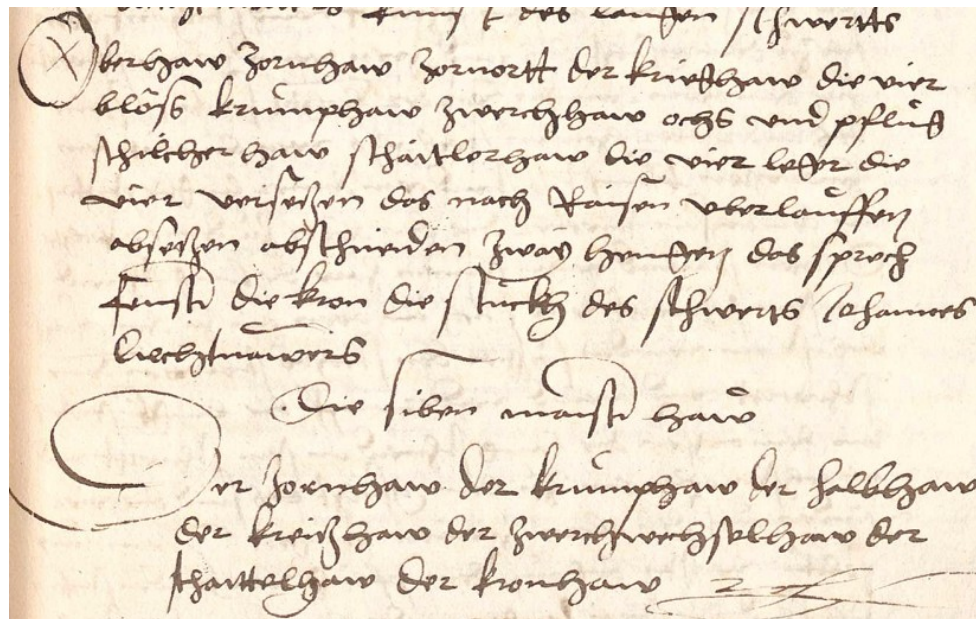 kunst des langen schwertts
Oberhaw zornhaw zornortt der krieghaw die vier
blöss krümphaw zwerchhaw ochs vnd pflüg
schilcherhaw schaittlerhaw die vier leger die
vier versetzen das nach Raisen vberlauffen
absetzen abschneiden zway hengen das sprech
fenstr die kron die stuckh des schwerts Johannes
liechtnawers
Die siben maistr haw
Der zornhaw der krumphaw der halbhaw
der kreitzhaw der zwerchwechselhaw der
schaittelhaw der kronhaw